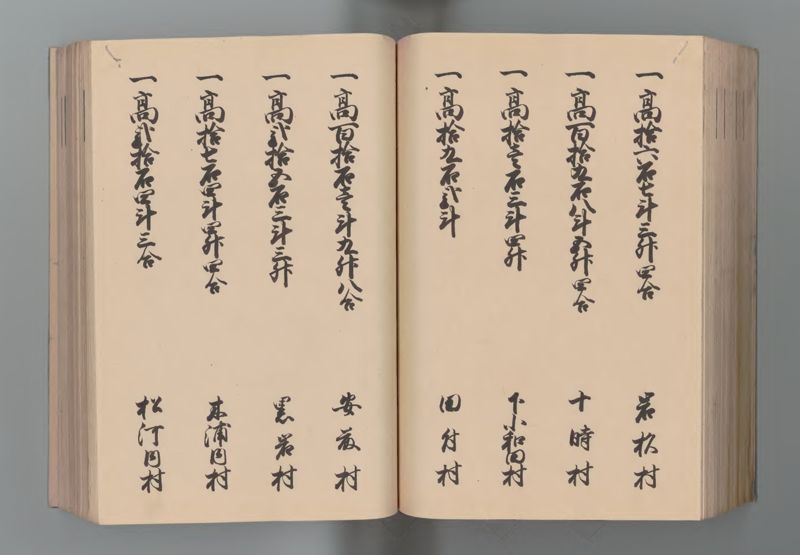 一高拾六石七斗三升四合 岩松村
一高百拾九石八斗五升四合 十時村
一高拾壱石三斗四升 下小和田村
一高拾九石弐斗 田付村
一高百拾石壱斗九升八合 安藤村
一高弐拾五石三斗三升 黒岩村
一高拾七石四斗四升四合 木浦内村
一高弐拾石四斗三合 松河内村